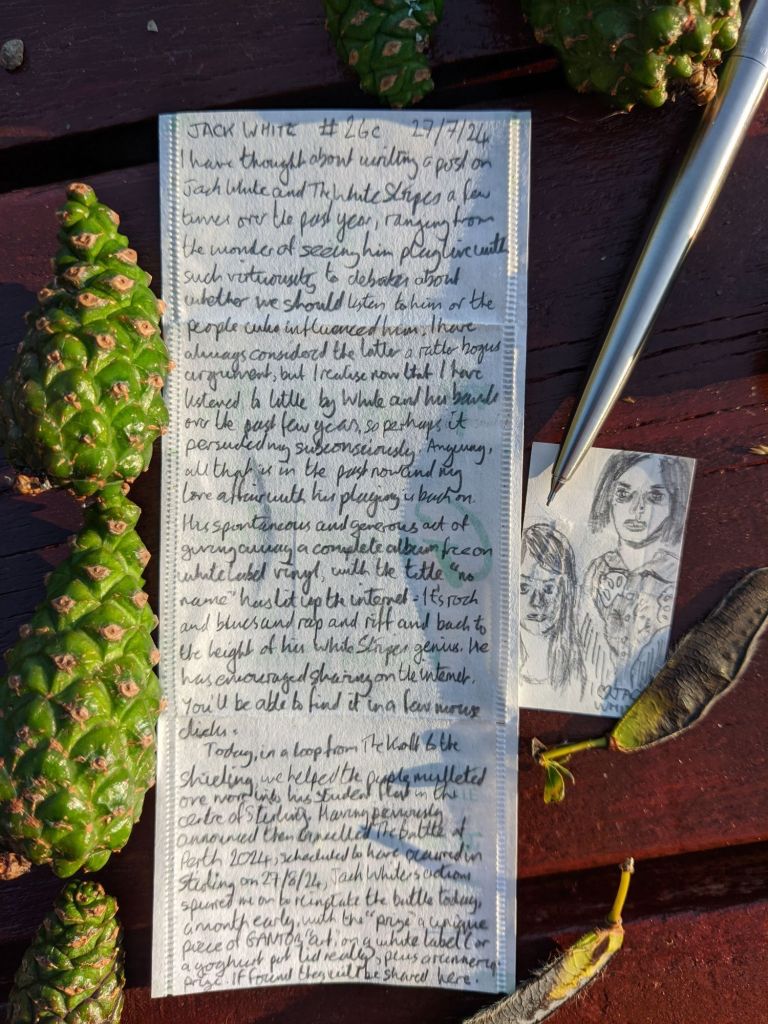 JACK WHITE #26c 27/7/24
I have thought about writing a post on
Jack White and The White Stripes a few
times over the past year, ranging from
the wonder of seeing him play live with
such virtuosity to debates about
whether we should listen to him or the
people who influenced him. I have
always considered the latter a rather bogus
argument, but I realise now that I have
listened to little by White and his bands
over the past few years, so perhaps it
persuaded my subconsciously. Anyway,
all that is in the past now and my
love affair with his playing is back on.
His spontaneous and generous act of
giving away a complete album free on
white label vinyl, with the title "no
name" has lit up the internet - It's rock
and blues and rap and riff and back to
the height of his White Stripes genius. He
has encouraged sharing on the internet.
You'll be able to find it in a few mouse
clicks.
Today, in a loop from The Knoll to the
Shieling we helped the purple mulleted
one move into his student flat in the
centre of Stirling. Having previously
announced then cancelled The Battle of
Perth 2024, scheduled to have occurred in
Stirling on 27/8/24, Jack White's actions
spurred me on to reinstate the battle today,
a month early, with the "prize" a unique
piece of GAMTOR art, on a white label (or
a yoghurt pot lid really), plus a runner up
prize. If found they will be shared here.
JACK
WHITE